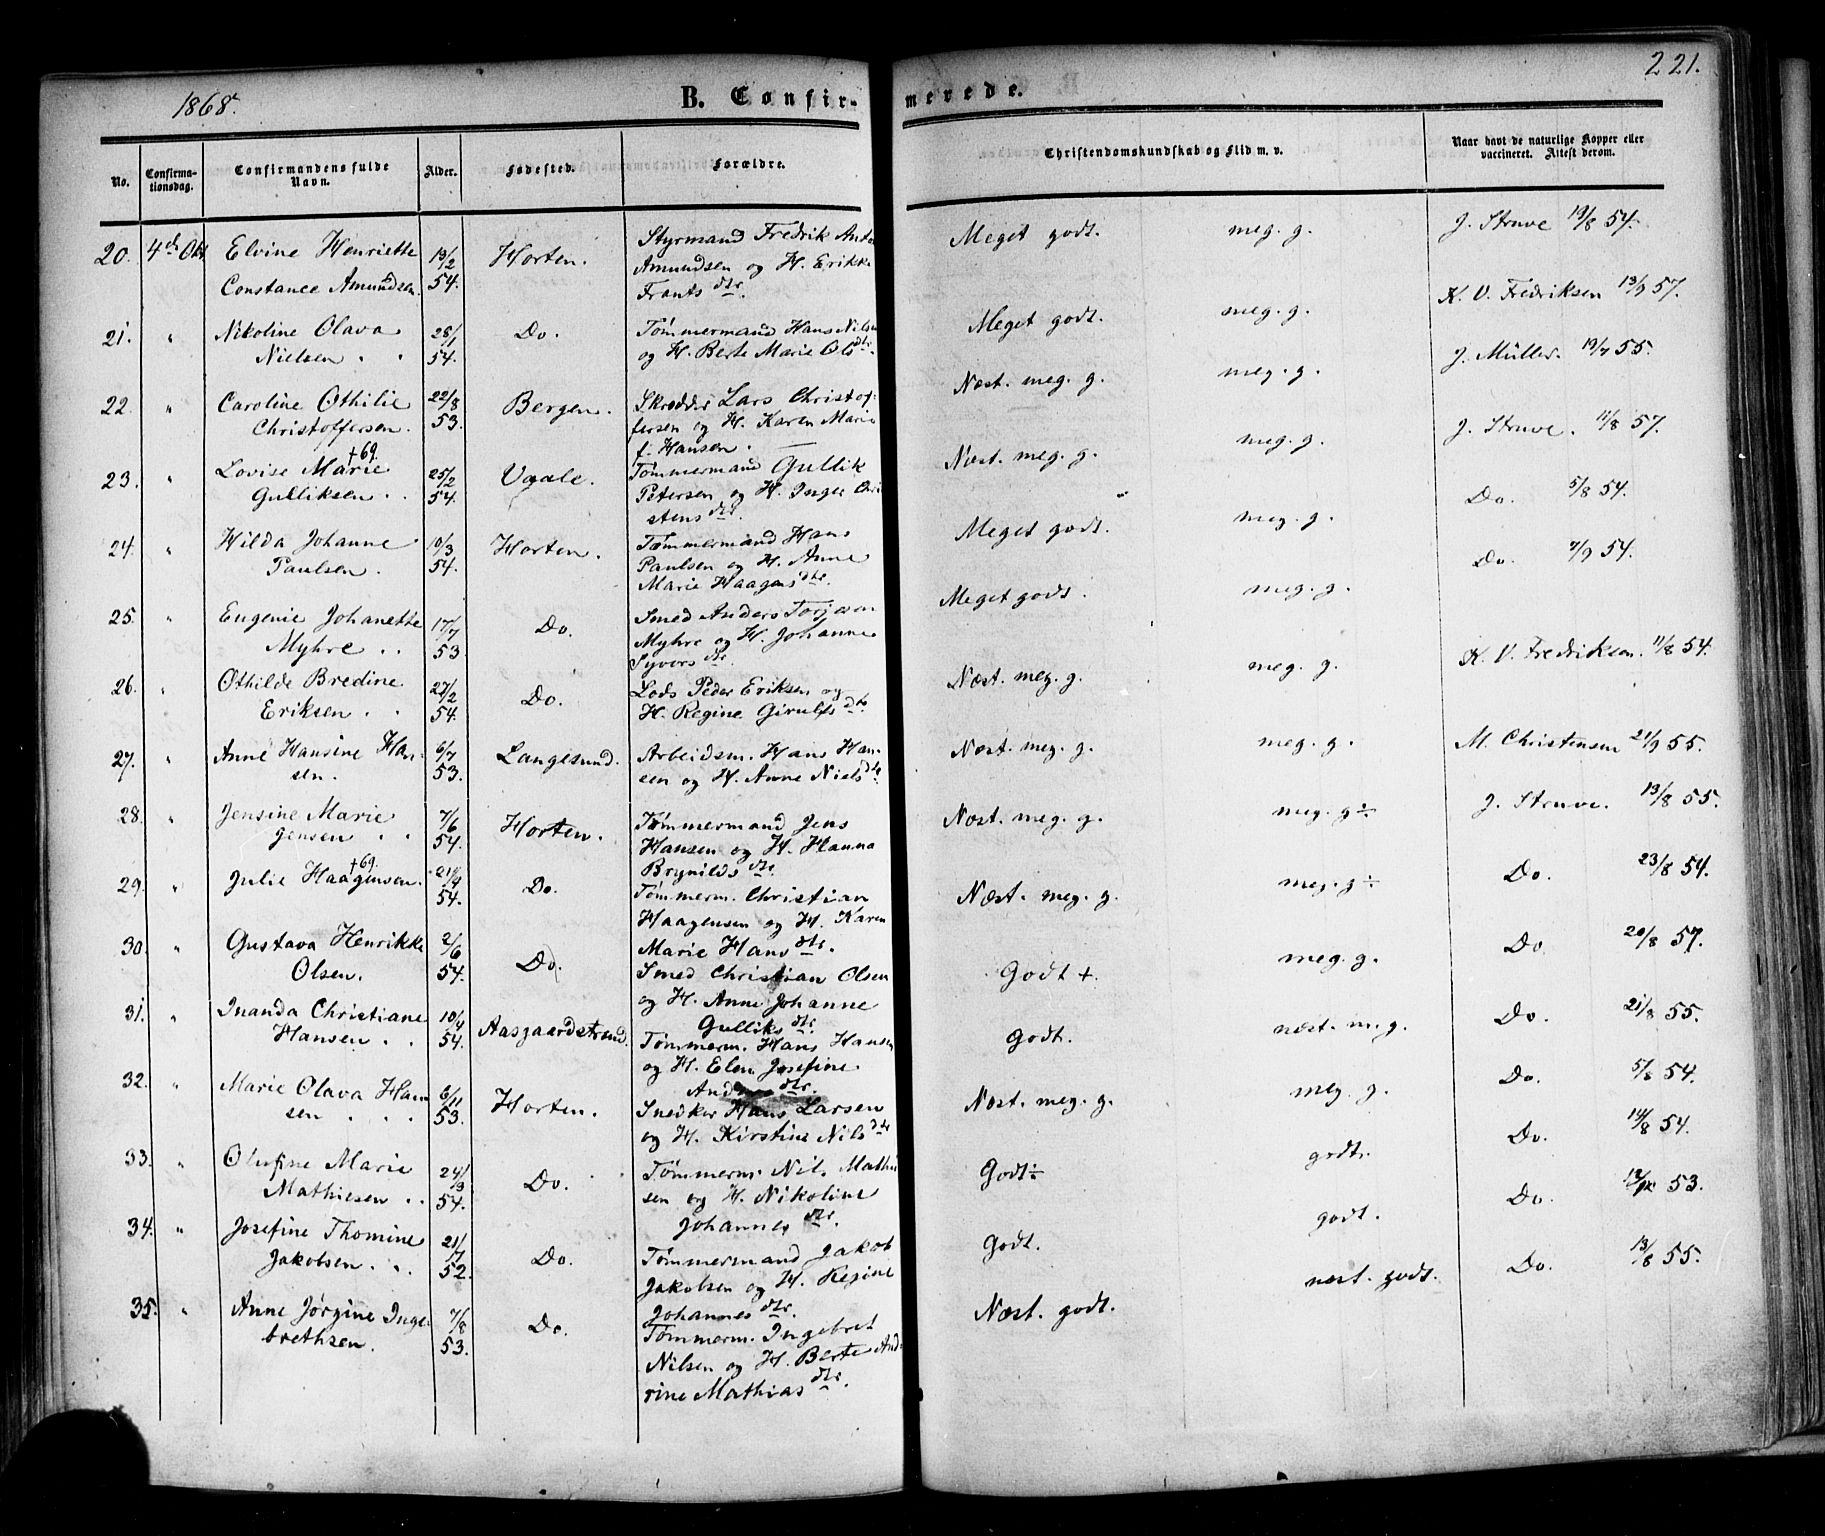 1868.
B. Confir-
merede.
221.
No.
Confirma-
tionsdag.
Confirmandens fulde
Navn.
Alder.
Fødested.
Forældre.
Christendomskundskab og Flid m. v.
Naar havt de naturlige Kopper eller
vaccineret. Attest derom.
20. 4de Okt Elvine Henriette 19/2 Horten. Styrmand Fredrik Anto Meget godt. meg. g. J. Struve 19/8 54.
Constance Amundsen. 54. Amundsen og H. Erikke
Frants dtr
21. " Nikoline Olava 28/1 Do. Tømmermand Hans Nilsen Meget godt. meg. g. K. V. Fredriksen 13/9 57.
Nielsen . . 54. og H. Berte Marie Ols dtr.
22. " Caroline Othilie 22/8 Bergen. Skrædder Lars Christof- Næst. meg. g. meg. g. J. Müller. 19/7 55.
Christoffersen. 53. fersen og H. Karen Marie
f. Hansen.
23. " Lovise Marie +69. 25/2 Vaale. Tømmermand Gullik Næst. meg. g. meg. g. J. Struve. 11/8 57.
Gulliksen . . 54. Petersen og H. Inger Chri
stens dtr.
24. " Hilda Johanne 10/3 Horten. Tømmermand Hans Meget godt. meg. g. Do. 5/8 54.
Paulsen. 54. Paulsen og H. Anne
Marie Haagens dtr.
25. " Eugenie Johanette 17/7 Do. Smed Anders Torjesen Meget godt. meg. g. Do. 7/9 54.
Myhre . . 53. Myhre og H. Johanne
Syvers dtr.
26. " Othilde Bredine 27/2 Do. Lods Peder Eriksen og Næst. meg. g. meg. g. K. V. Fredriksen. 11/8 54.
Eriksen . . 54. H. Regine Girulfs dtr
27. " Anne Hansine Han- 6/7 Langesund. Arbeidsm. Hans Han- Næst. meg. g. meg. g. M. Christensen 21/9 55.
sen. 53. sen og H. Anne Niels dtr
28. " Jensine Marie 7/6 Horten. Tømmermand Jens Næst. meg. g. meg. g ÷ J. Struve. 13/8 55.
Jensen . . 54. Hansen og H. Hanna
Brynilds dtr.
29. " Julie Haagensen. +69. 21/4 Do. Tømmerm. Christian Næst. meg. g. meg. g ÷ Do. 23/8 54.
54. Haagensen og H. Karen
Marie Hans dtr.
30. " Gustava Henrikke 2/6 Do. Smed Christian Olsen Godt +. meg. g. Do. 20/8 57.
Olsen. 54. og H. Anne Johanne
Gulliks dtr.
31. " Inanda Christiane 10/4 Aasgaardstrand. Tømmerm. Hans Hansen Godt. næst. m. g. Do. 21/8 55.
Hansen . . 54. og H. Elen Josefine
dtr.
32. " Marie Olava Han 6/11 Horten. Snedker Hans Larsen Næst. meg. g. meg. g. Do. 5/8 54.
sen . . . 53. og H. Kirstine Nils dtr
33. " Olufine Marie 24/3 Do. Tømmerm. Nils Mathi Godt ÷ godt. Do. 14/8 54.
Mathiesen . . 54. sen og H. Nikoline
Johannes dtr.
34. " Josefine Thomine 21/7 Do. Tømmermand Jakob Godt. godt. Do. 53.
Jakobsen . . 52. Jakobsen og H. Regine
Johannes dtr.
35. " Anne Jørgine Inge- 7/8 Do. Tømmerm. Ingebret Næst. godt. næst. godt. Do. 13/8 55.
brethsen. 53. Nilsen og H. Berte And-
rine Mathias dtr.